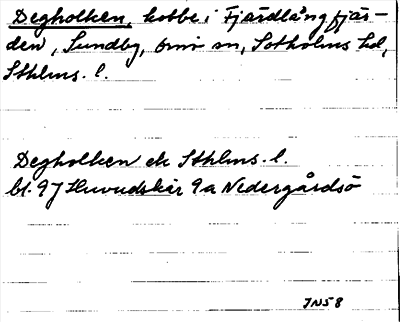 Degholken, kobbe i Fjärdlångfjär-
den, Sundby, Ornö sn, Sotholms hd,
Sthlms. l.
Degholken ek Sthlms. l.
bl. 97 Huvudskär 9a Nedergårdsö
JNS 8